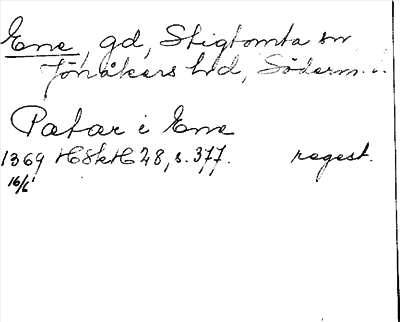 Ene, gd, Stigtomta sn
Jönåkers hd, Söderm. l.
Petar i Ene
1369 HSkH 28, s. 377. regest.
16/6